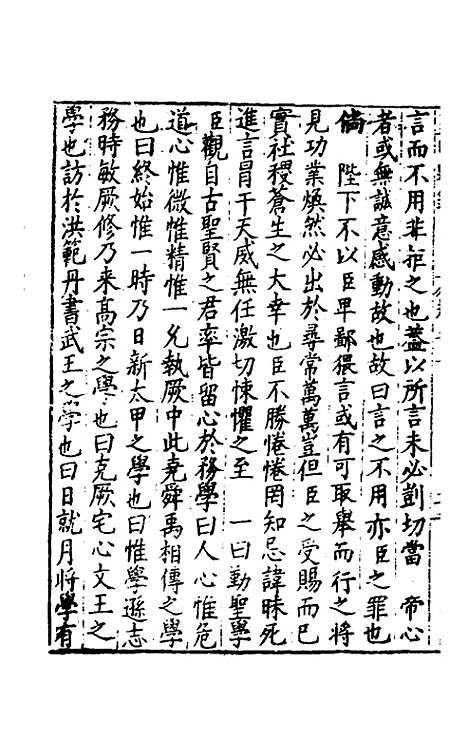 言而不用非拒之也蓋以所言未必剴切當　帝心
者或無誠意感動故也故曰言之不用亦臣之罪也
倘　陛下不以臣卑鄙猥言或有可取舉而行之將
見功業煥然必出於尋常萬萬豈但臣之受賜而已
實社稷蒼生之大幸也臣不勝惓惓罔知忌諱昧死
進言冐干天威無任激切悚懼之至　一曰勤聖學
臣觀自古聖賢之君率皆留心於務學曰人心惟危
道心惟微惟精惟一允執厥中此堯舜禹相傳之學
也曰終始惟一時乃日新太甲之學也曰惟學遜志
務時敏厥修乃来高宗之學也曰克厥宅心文王之
學也訪於洪範丹書武王之學也曰日就月將學有